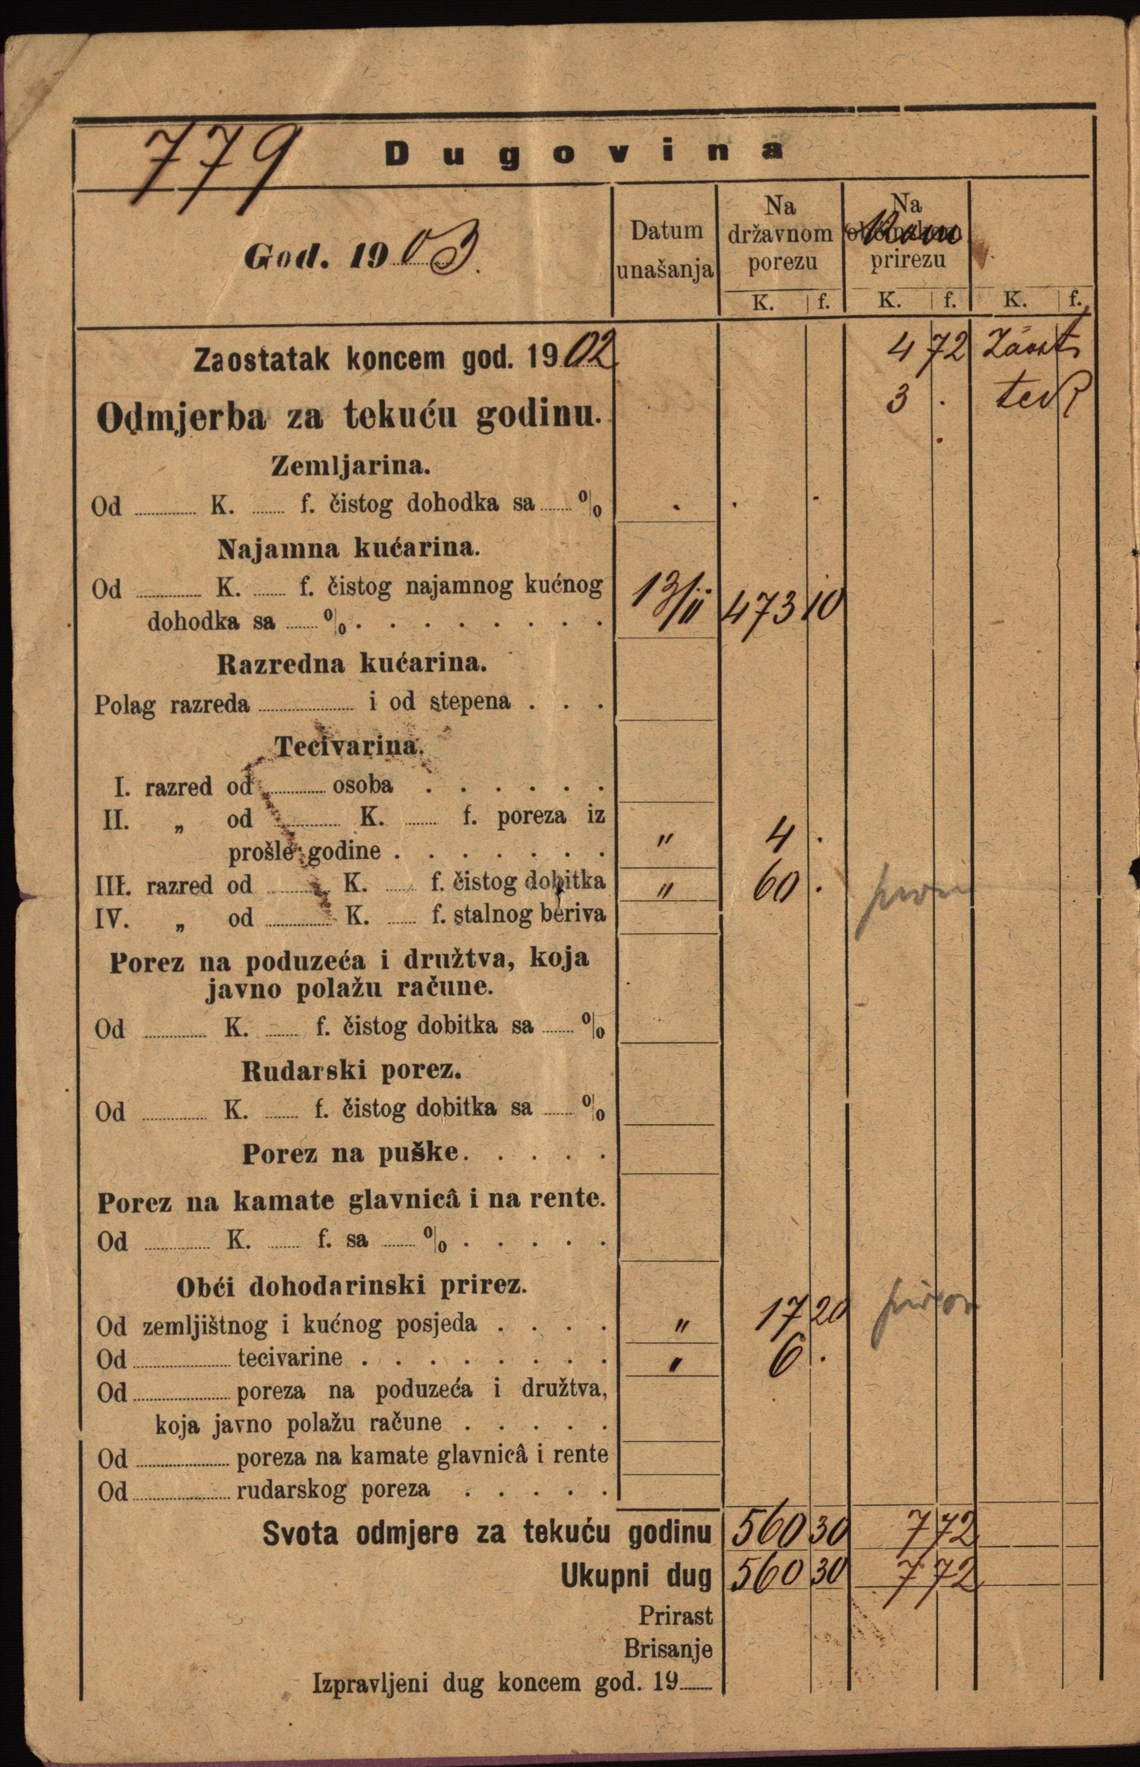 779
Dugovina
God. 1903.
Datum unašanja
Na državnom porezu
Na prirezu
K. f. K. f. K. f.
Zaostatak koncem god. 1902 4 72
Odmjerba za tekuću godinu. 3 .
Zemljarina.
Od K. f. čistog dohodka sa %
Najamna kućarina.
Od K. f. čistog najamnog kućnog
dohodka sa % . . . . . . . . 473 10
Razredna kućarina.
Polag razreda i od stepena . . .
Tecivarina.
I. razred od osoba . . . . . .
II. „ od K. f. poreza iz
prošle godine . . . . . . . " 4 .
III. razred od K. f. čistog dobitka " 60 .
IV. „ od K. f. stalnog beriva
Porez na poduzeća i družtva, koja
javno polažu račune.
Od K. f. čistog dobitka sa %
Rudarski porez.
Od K. f. čistog dobitka sa %
Porez na puške . . . . .
Porez na kamate glavnicâ i na rente.
Od K. f. sa % . . . . .
Obći dohodarinski prirez.
Od zemljištnog i kućnog posjeda . . . . " 17 20
Od tecivarine . . . . . . . . " 6 .
Od poreza na poduzeća i družtva,
koja javno polažu račune . . . . .
Od poreza na kamate glavnicâ i rente
Od rudarskog poreza . . . . .
Svota odmjere za tekuću godinu 560 30 7 72
Ukupni dug 560 30 7 72
Prirast
Brisanje
Izpravljeni dug koncem god. 19